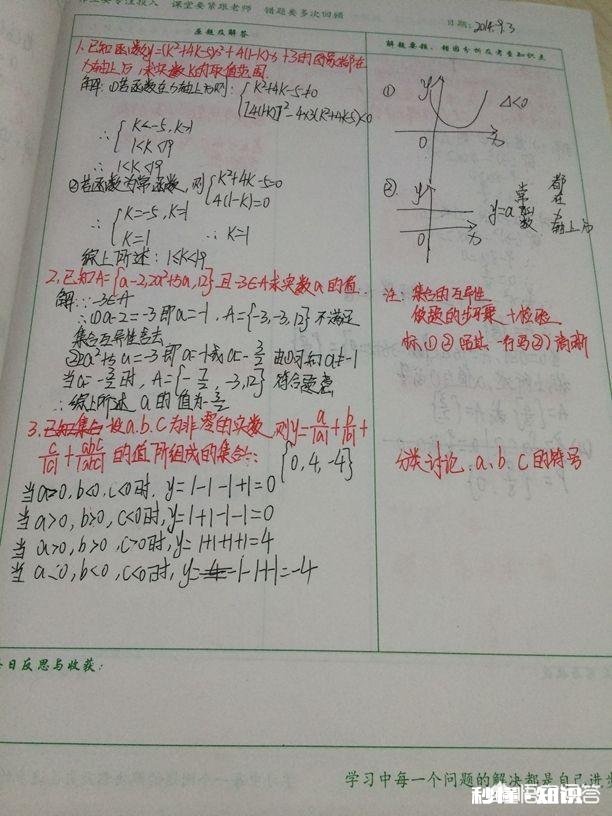 专注投入 课堂要紧跟老师 错题要多次回顾
日期: 2014.9.3
错题及解答
解题要领、错因分析及考查知识点
1.已知函数y=(k²+4k-5)x²+4(1-k)x+3的图象都在
x轴上方,求实数k的取值范围.
解:①若函数在x轴上方则:{k²+4k-5≠0
[4(1-k)]²-4×3(k²+4k-5)<0
∴{k<-5,k>1
1<k<19
∴1<k<19
②若函数为常函数,则{k²+4k-5=0
4(1-k)=0
∴{k=-5,k=1
k=1 ∴k=1
综上所述:1≤k<19
2.已知A={a-2,2a²+5a,12}且-3∈A求实数a的值.
解:∵-3∈A
∴①a-2=-3即a=-1,A={-3,-3,12}不满足
集合互异性舍去
②2a²+5a=-3即a=-1或a=-3/2 由①可知a≠-1
当a=-3/2时,A={-7/2,-3,12}符合题意
∴综上所述a的值为-3/2
3.已知集合 设a.b.c为非零的实数,则y=a/|a|+b/|b|+
c/|c|+abc/|abc|的值所组成的集合:
{0,4,-4}
当a>0,b<0,c<0时,y=1-1-1+1=0
当a>0,b>0,c<0时,y=1+1-1-1=0
当a>0,b>0,c>0时,y=1+1+1+1=4
当a<0,b<0,c<0时,y=-4-1-1+1=-4
① y Δ<0
0 x
② y
y=a 常函数 都在x轴上方
0 x
注: 集合的互异性
做题的步骤+检验
标①②
分类讨论.a、b、c的符号
日反思与收获:
学习中每一个问题的解决都是自己进步
秒懂·知识
悟空问答